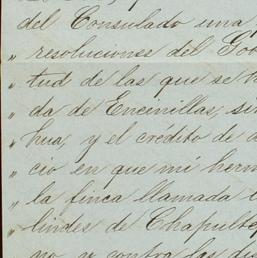 del Consulado una
" resoluciones del Go
" tud de las que se h
" da de Encinillas, si
" hua, y el credito de a
" cio en que mi herm
" la finca llamada
" lindes de Chapulte
" no, y contra las di